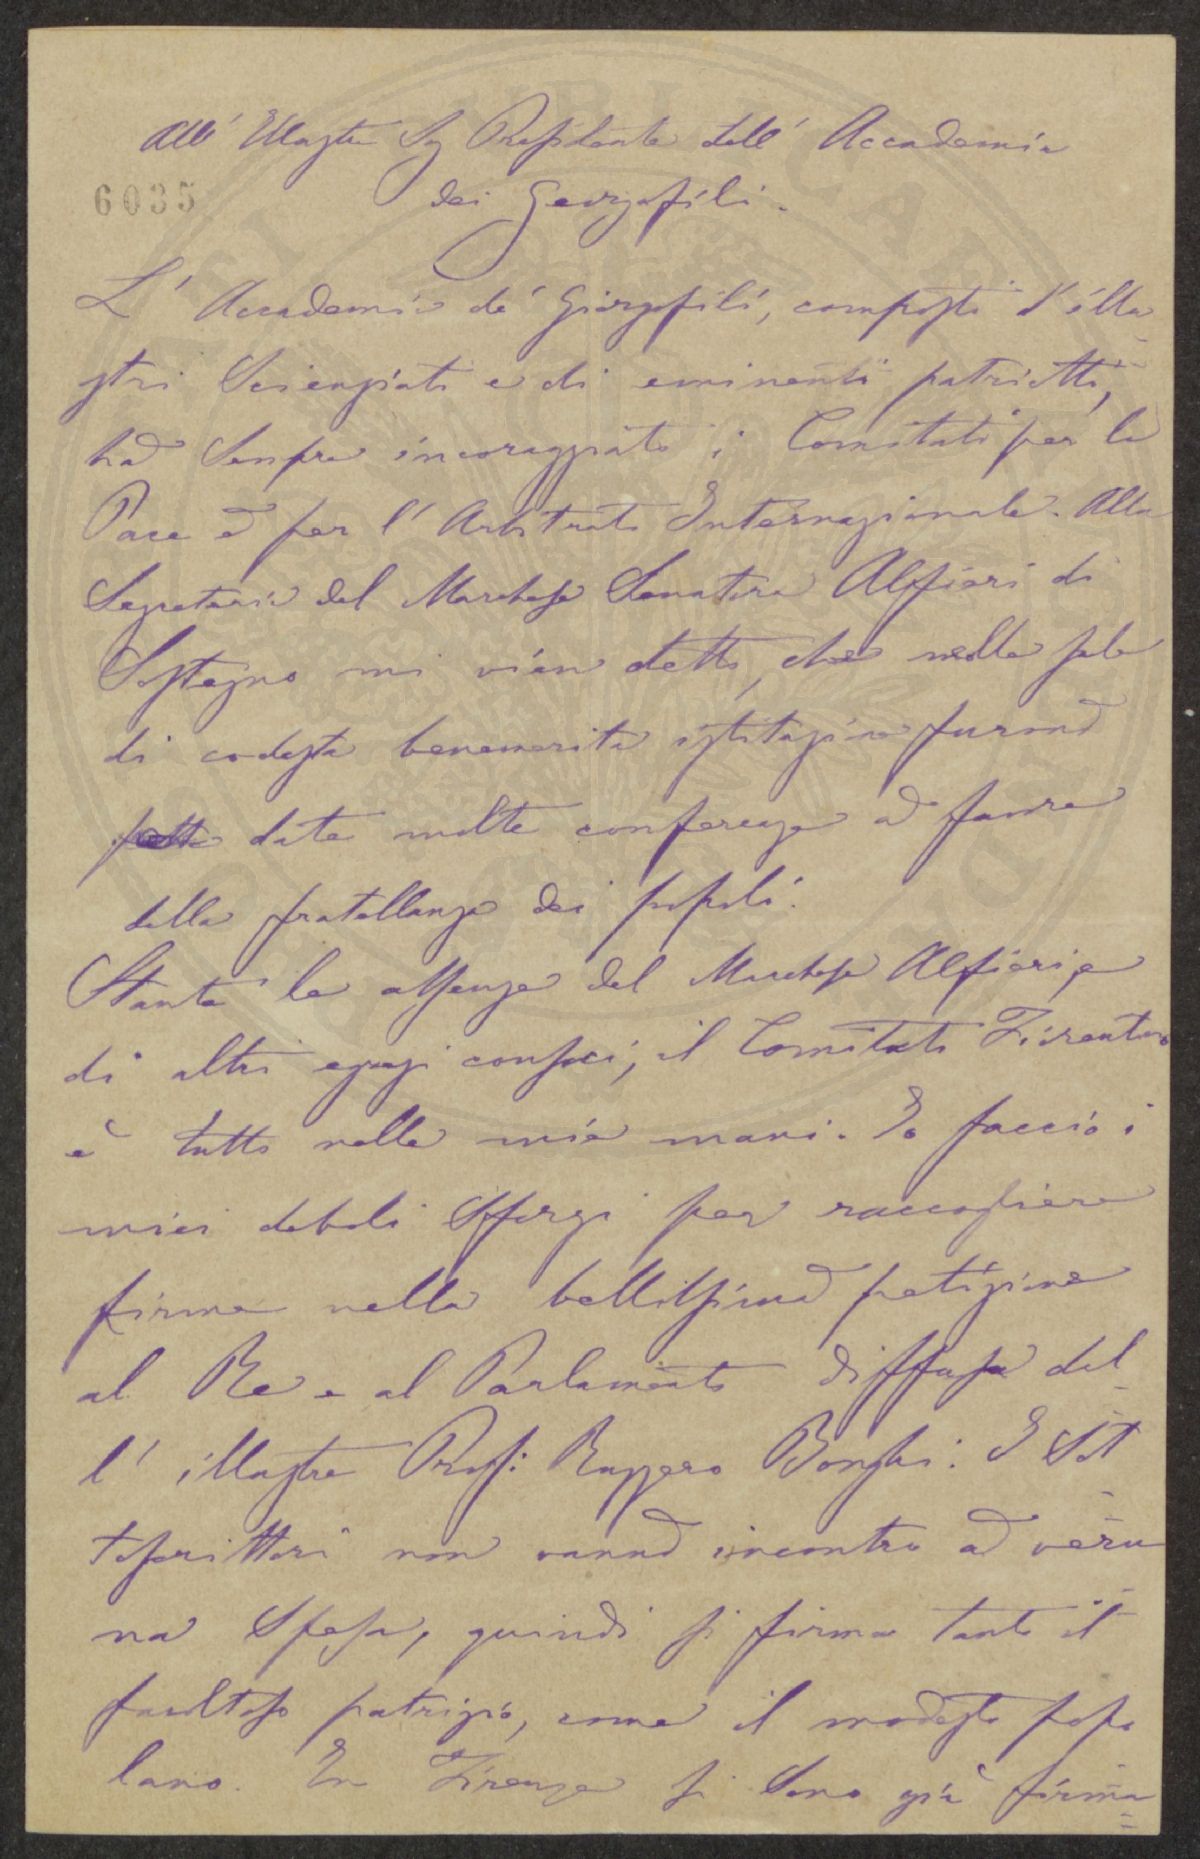 All' Illustre Sig Presidente dell' Accademia
6035
dei Georgofili.
L' Accademia de' Giorgofili, composta d' illu
stri Scienziati e di eminenti patriotti,
ha Sempre incoraggiato i Comitati per la
Pace e per l' Arbitrato Internazionale. Alla
Segreteria del Marchese Senatore Alfieri di
Sostegno mi vien detto, che nella sala
di codesta benemerita istituzione furono
date molte conferenze a favore
della fratellanza dei popoli.
Stante la assenza del Marchese Alfieri, e
di altri egregi consoci, il Comitato Fiorentino
è tutto nelle mie mani. Io faccio i
miei deboli sforzi per raccogliere
firme nella bellissima petizione
al Re e al Parlamento diffusa del
l' illustre Prof: Ruggero Bonghi. I Sot
toscrittori non vanno incontro a veru
na Spesa, quindi si firma tanto il
facoltoso patrizio, come il modesto popo
lano. In Firenze si Sono già firma